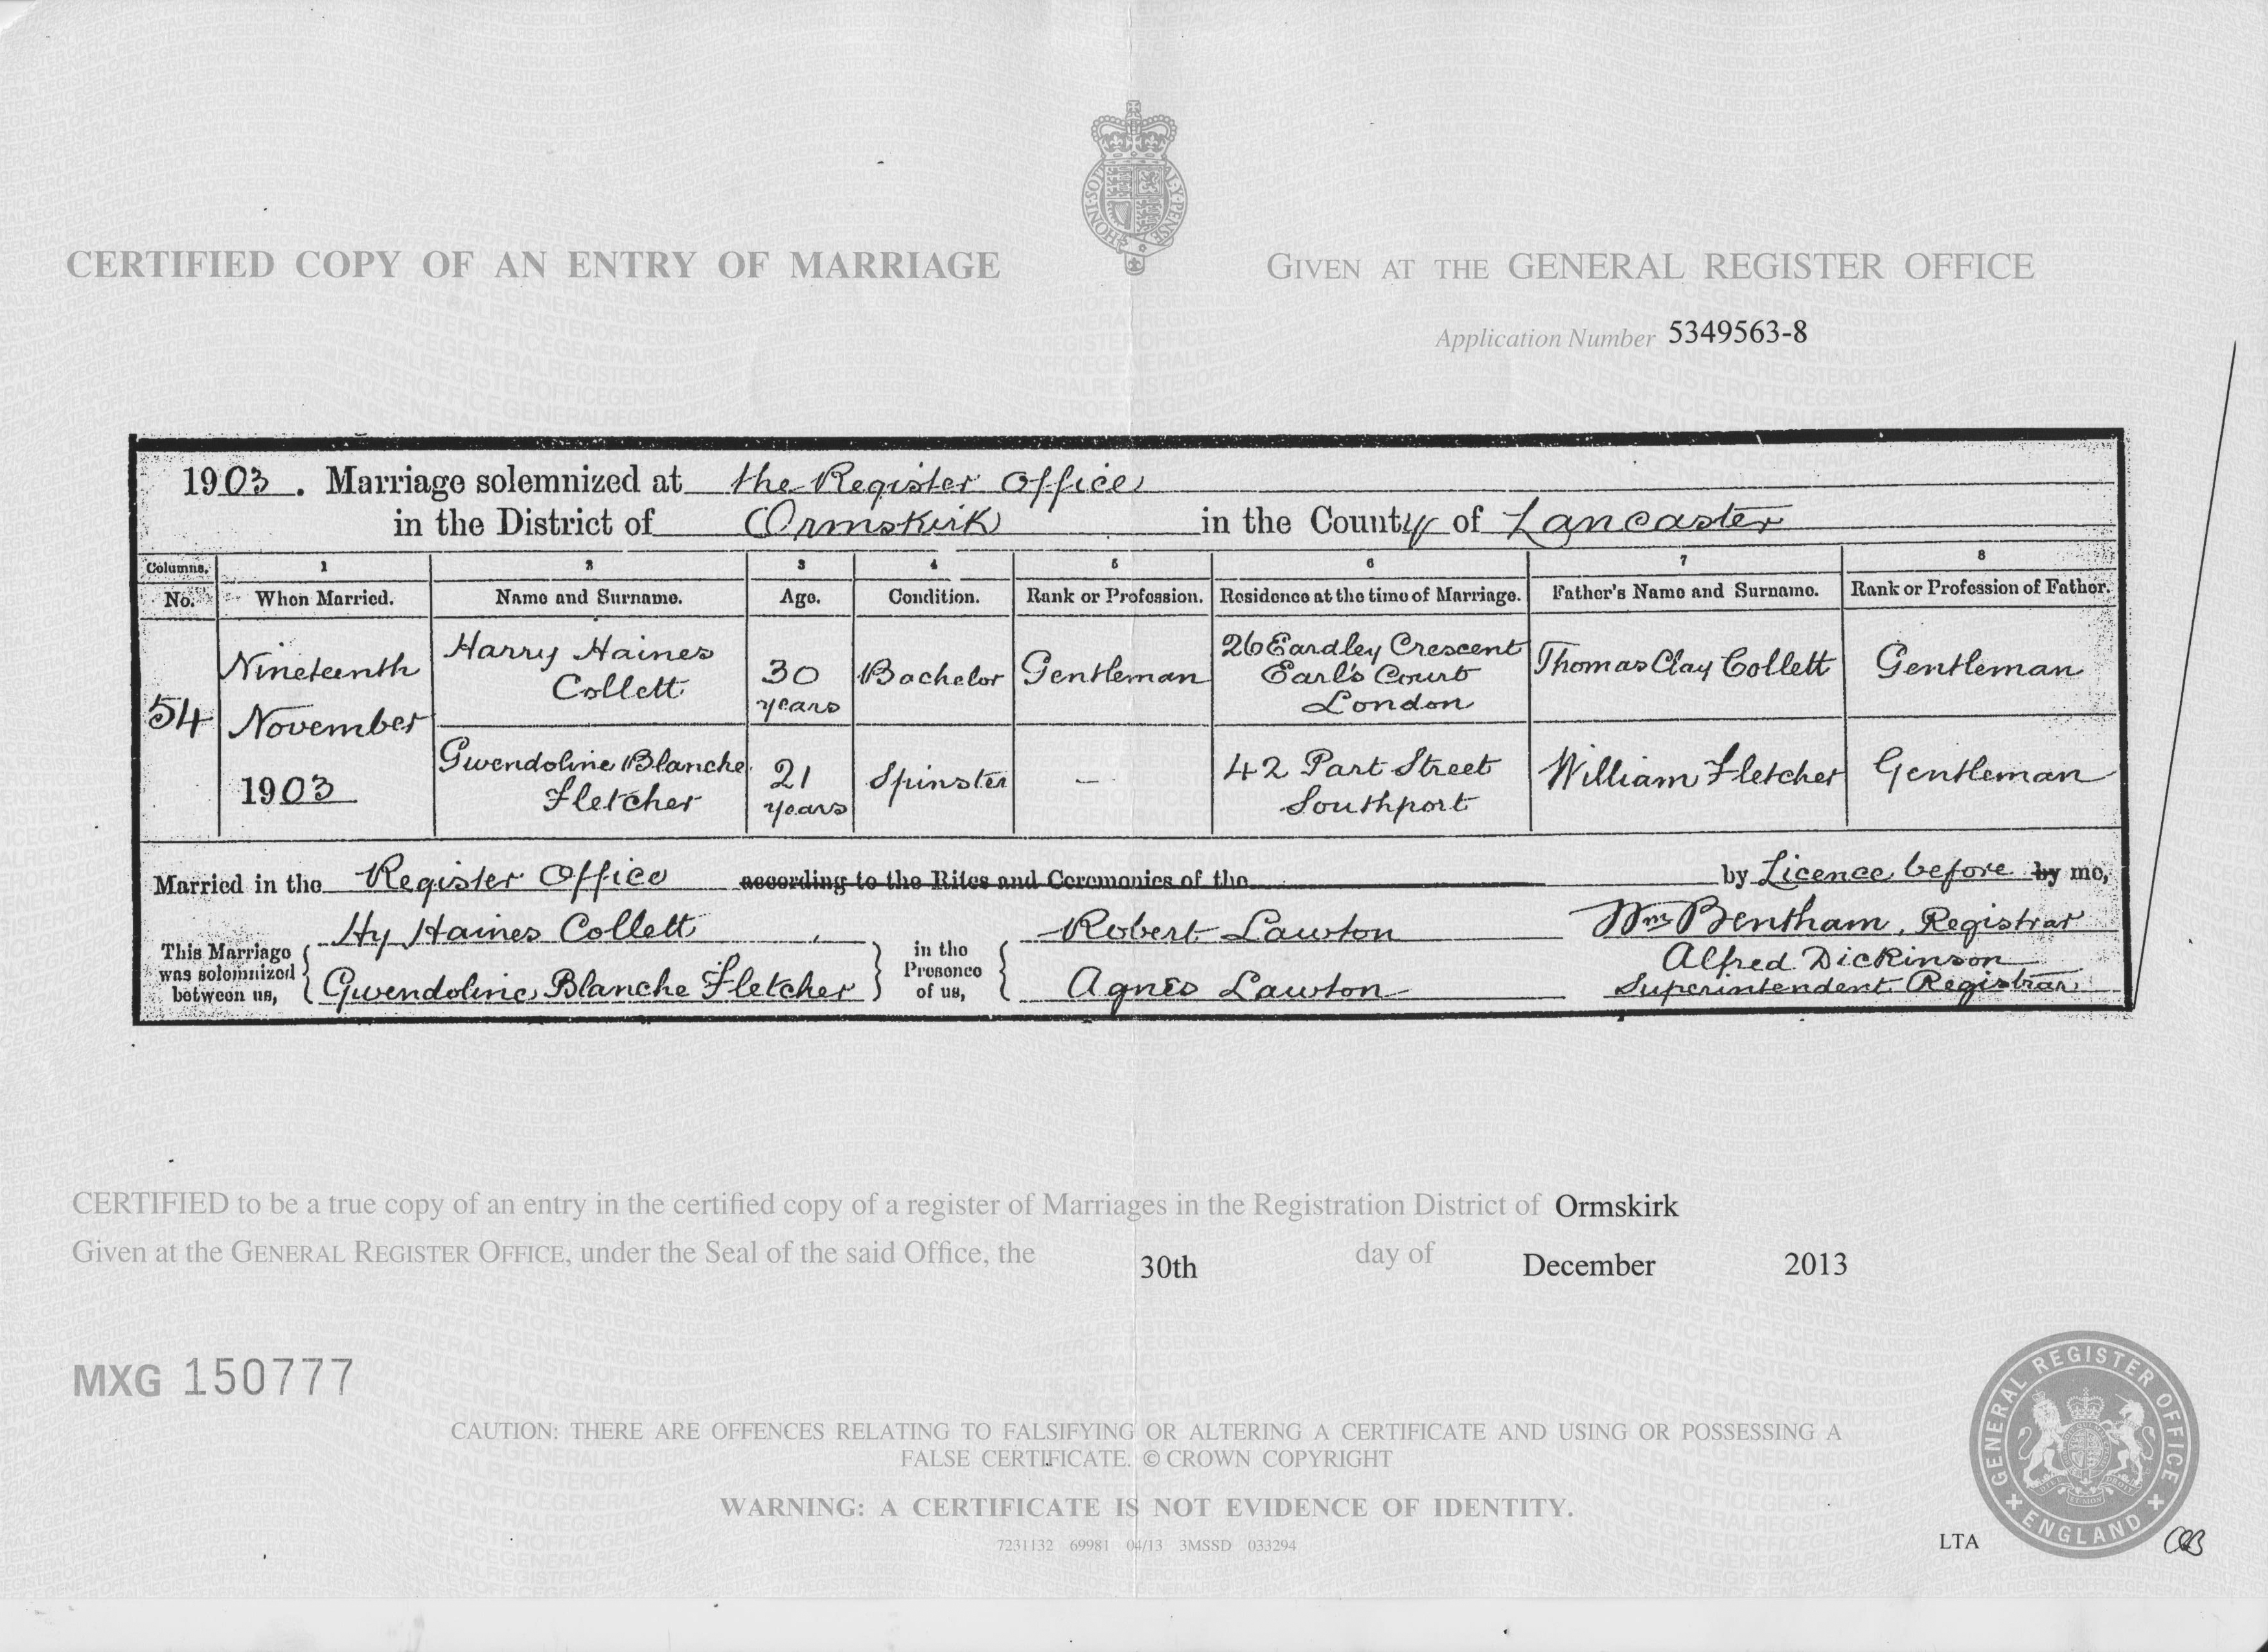 HONI·SOIT
Y·PENSE
CERTIFIED COPY OF AN ENTRY OF MARRIAGE
GIVEN AT THE GENERAL REGISTER OFFICE
Application Number 5349563-8
1903. Marriage solemnized at the Register Office
in the District of Ormskirk in the County of Lancaster
Columns. 1 2 3 4 5 6 7 8
No. When Married. Name and Surname. Age. Condition. Rank or Profession. Residence at the time of Marriage. Father's Name and Surname. Rank or Profession of Father.
54
Nineteenth
November
1903
Harry Haines
Collett
30
years
Bachelor
Gentleman
26 Eardley Crescent
Earl's Court
London
Thomas Clay Collett
Gentleman
Gwendoline Blanche
Fletcher
21
years
Spinster
—
42 Part Street
Southport
William Fletcher
Gentleman
Married in the Register Office according to the Rites and Ceremonies of the by Licence before by me,
This Marriage
was solemnized
between us,
Hy Haines Collett
Gwendoline Blanche Fletcher
in the
Presence
of us,
Robert Lawton
Agnes Lawton
Wm Bentham, Registrar
Alfred Dickinson
Superintendent Registrar
CERTIFIED to be a true copy of an entry in the certified copy of a register of Marriages in the Registration District of Ormskirk
Given at the GENERAL REGISTER OFFICE, under the Seal of the said Office, the 30th day of December 2013
MXG 150777
CAUTION: THERE ARE OFFENCES RELATING TO FALSIFYING OR ALTERING A CERTIFICATE AND USING OR POSSESSING A
FALSE CERTIFICATE. © CROWN COPYRIGHT
WARNING: A CERTIFICATE IS NOT EVIDENCE OF IDENTITY.
7231132 69981 04/13 3MSSD 033294
LTA
GENERAL REGISTER OFFICE
ENGLAND